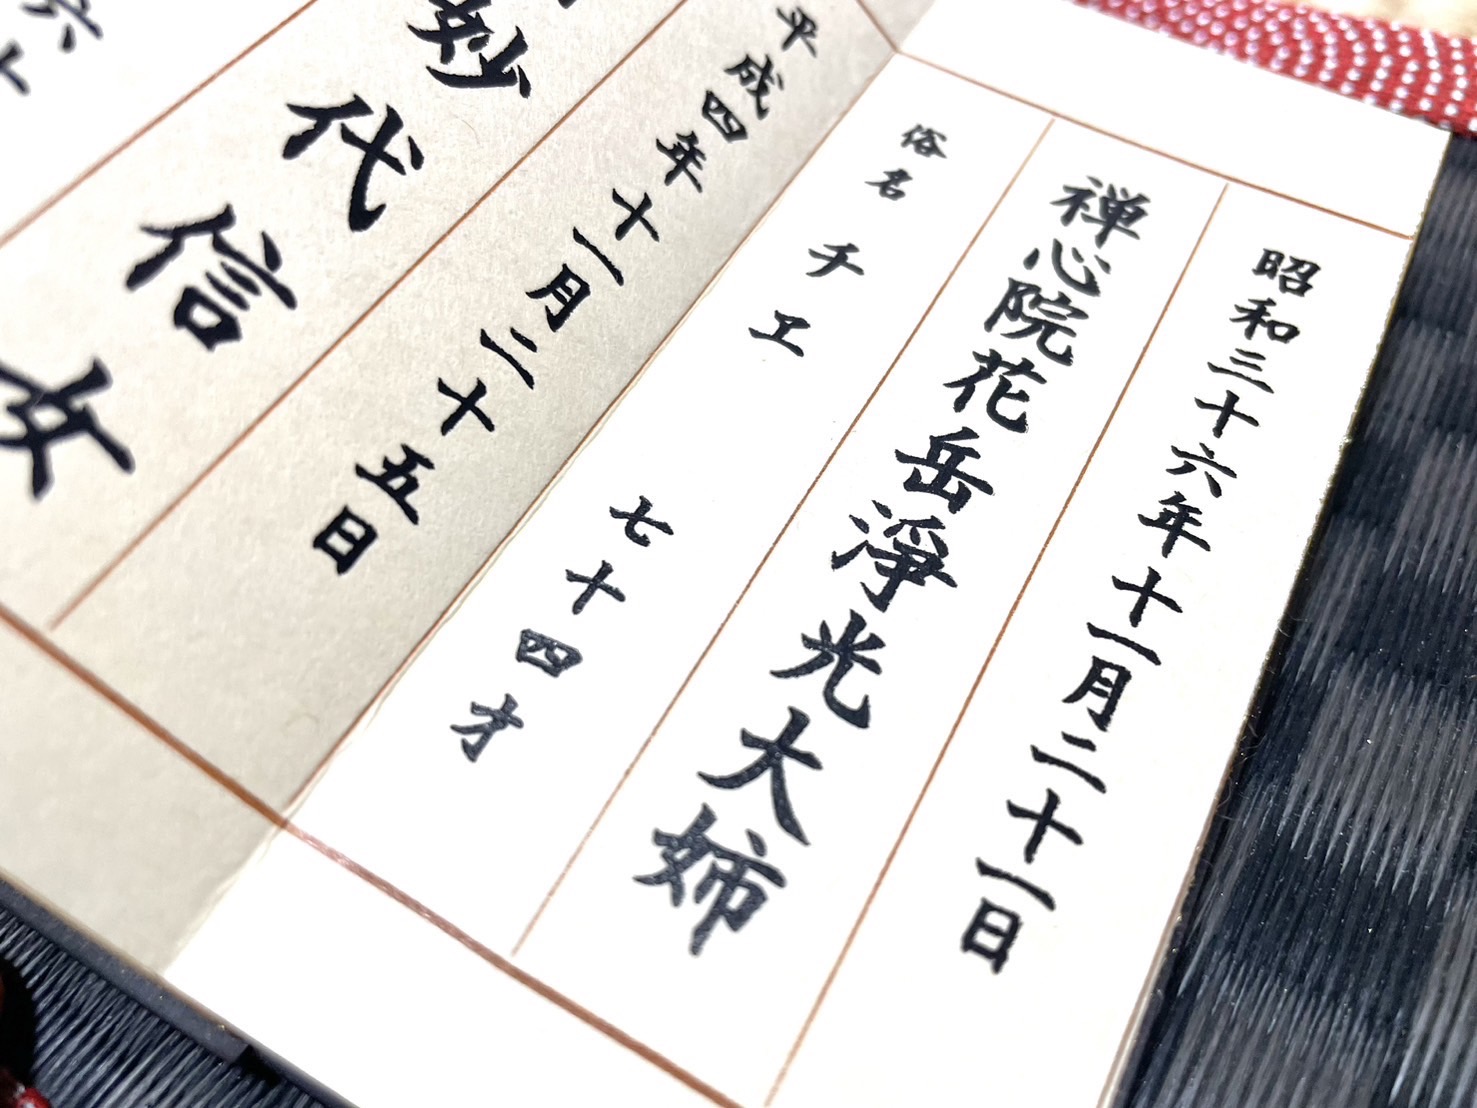 昭和三十六年十一月二十一日
禅心院花岳淨光大姉
俗名 チエ 七十四才
平成四年十一月二十五日
妙代信女
六十